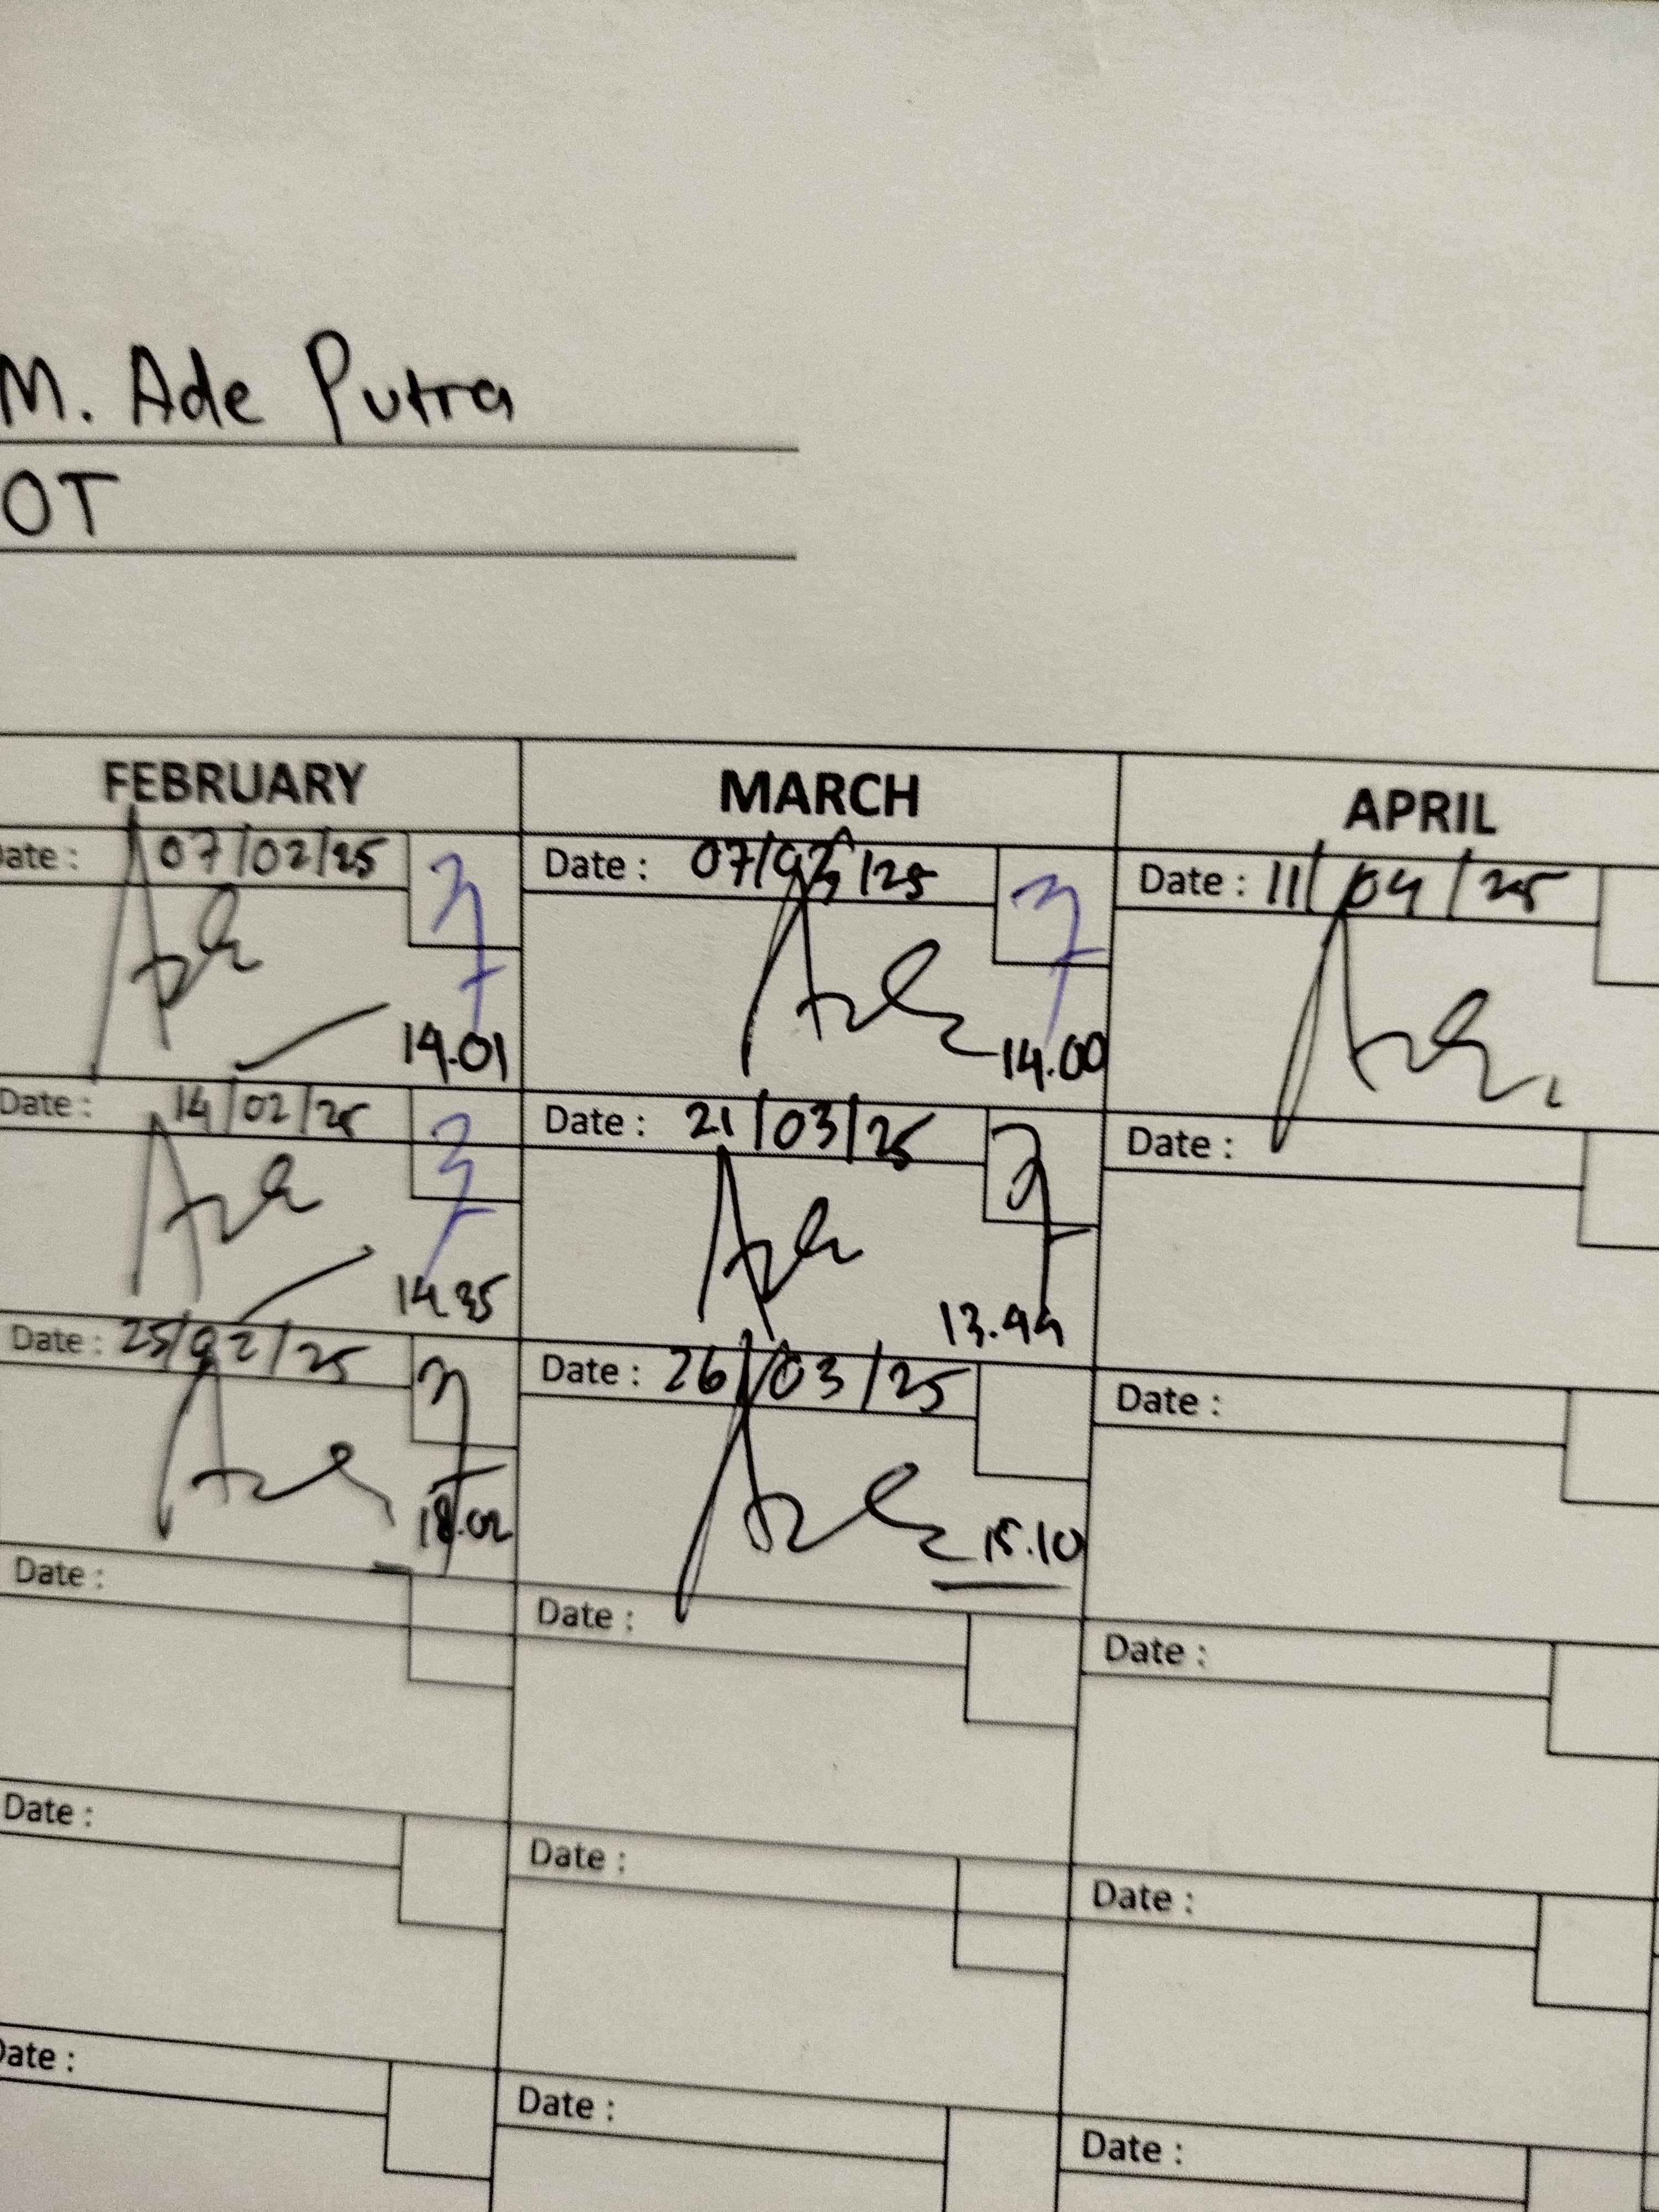 M. Ade Putra
OT
FEBRUARY MARCH APRIL
Date : 07/02/25
Date : 07/03/25
Date : 11/04/25
14.01
14.00
Date : 14/02/25
Date : 21/03/25
Date :
14.35
13.44
Date : 25/02/25
Date : 26/03/25
Date :
18.02
15.10
Date :
Date :
Date :
Date :
Date :
Date :
Date :
Date :
Date :